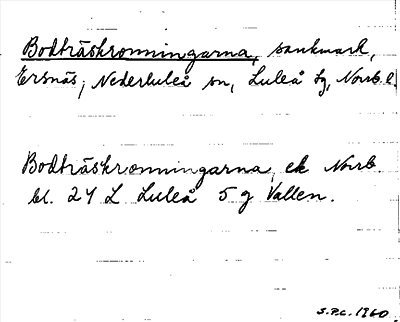 Bodträskronningarna, sankmark,
Ersnäs, Nederluleå sn, Luleå tg, Norrb. l.
Bodträskronningarna, ek Norrb.
bl. 24 L Luleå 5 g Vallen.
S.P.C. 1960